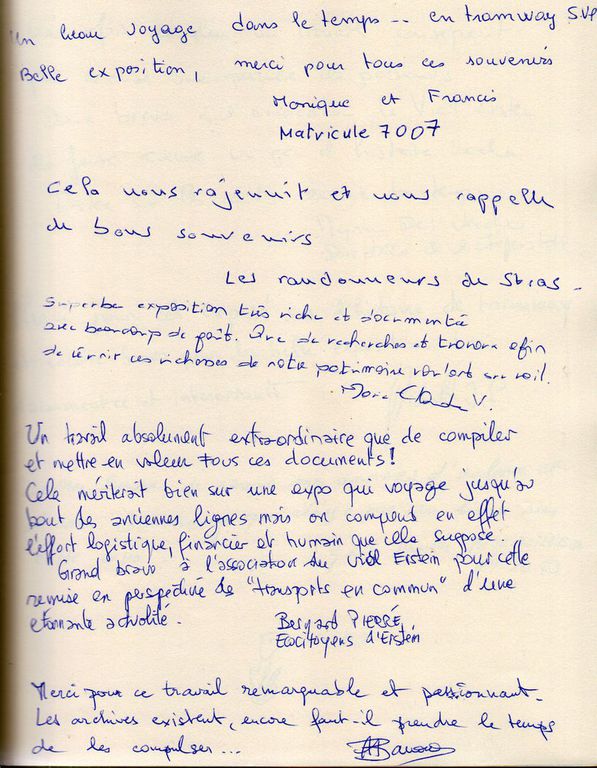 Un beau voyage dans le temps -- en tramway SVP
Belle exposition, merci pour tous ces souvenirs
Monique et Francis
Matricule 7007
Cela nous rajeunit et nous rappelle
de bons souvenirs
Les randonneurs de Stras -
Superbe exposition très riche et documentée
avec beaucoup de goût. Que de recherches et travaux afin
de réunir ces richesses de notre patrimoine roulant sur rail.
Marie Claude V.
Un travail absolument extraordinaire que de compiler
et mettre en valeur tous ces documents!
Cela mériterait bien sur une expo qui voyage jusqu'au
bout des anciennes lignes mais on comprend en effet
l'effort logistique, financier et humain que cela suppose.
Grand bravo à l'association du vieil Erstein pour cette
remise en perspective de "transports en commun" d'une
étonnante actualité.
Bernard PIERRÉ,
Ecocitoyens d'Erstein
Merci pour ce travail remarquable et passionnant.
Les archives existent, encore faut-il prendre le temps
de les compulser ...